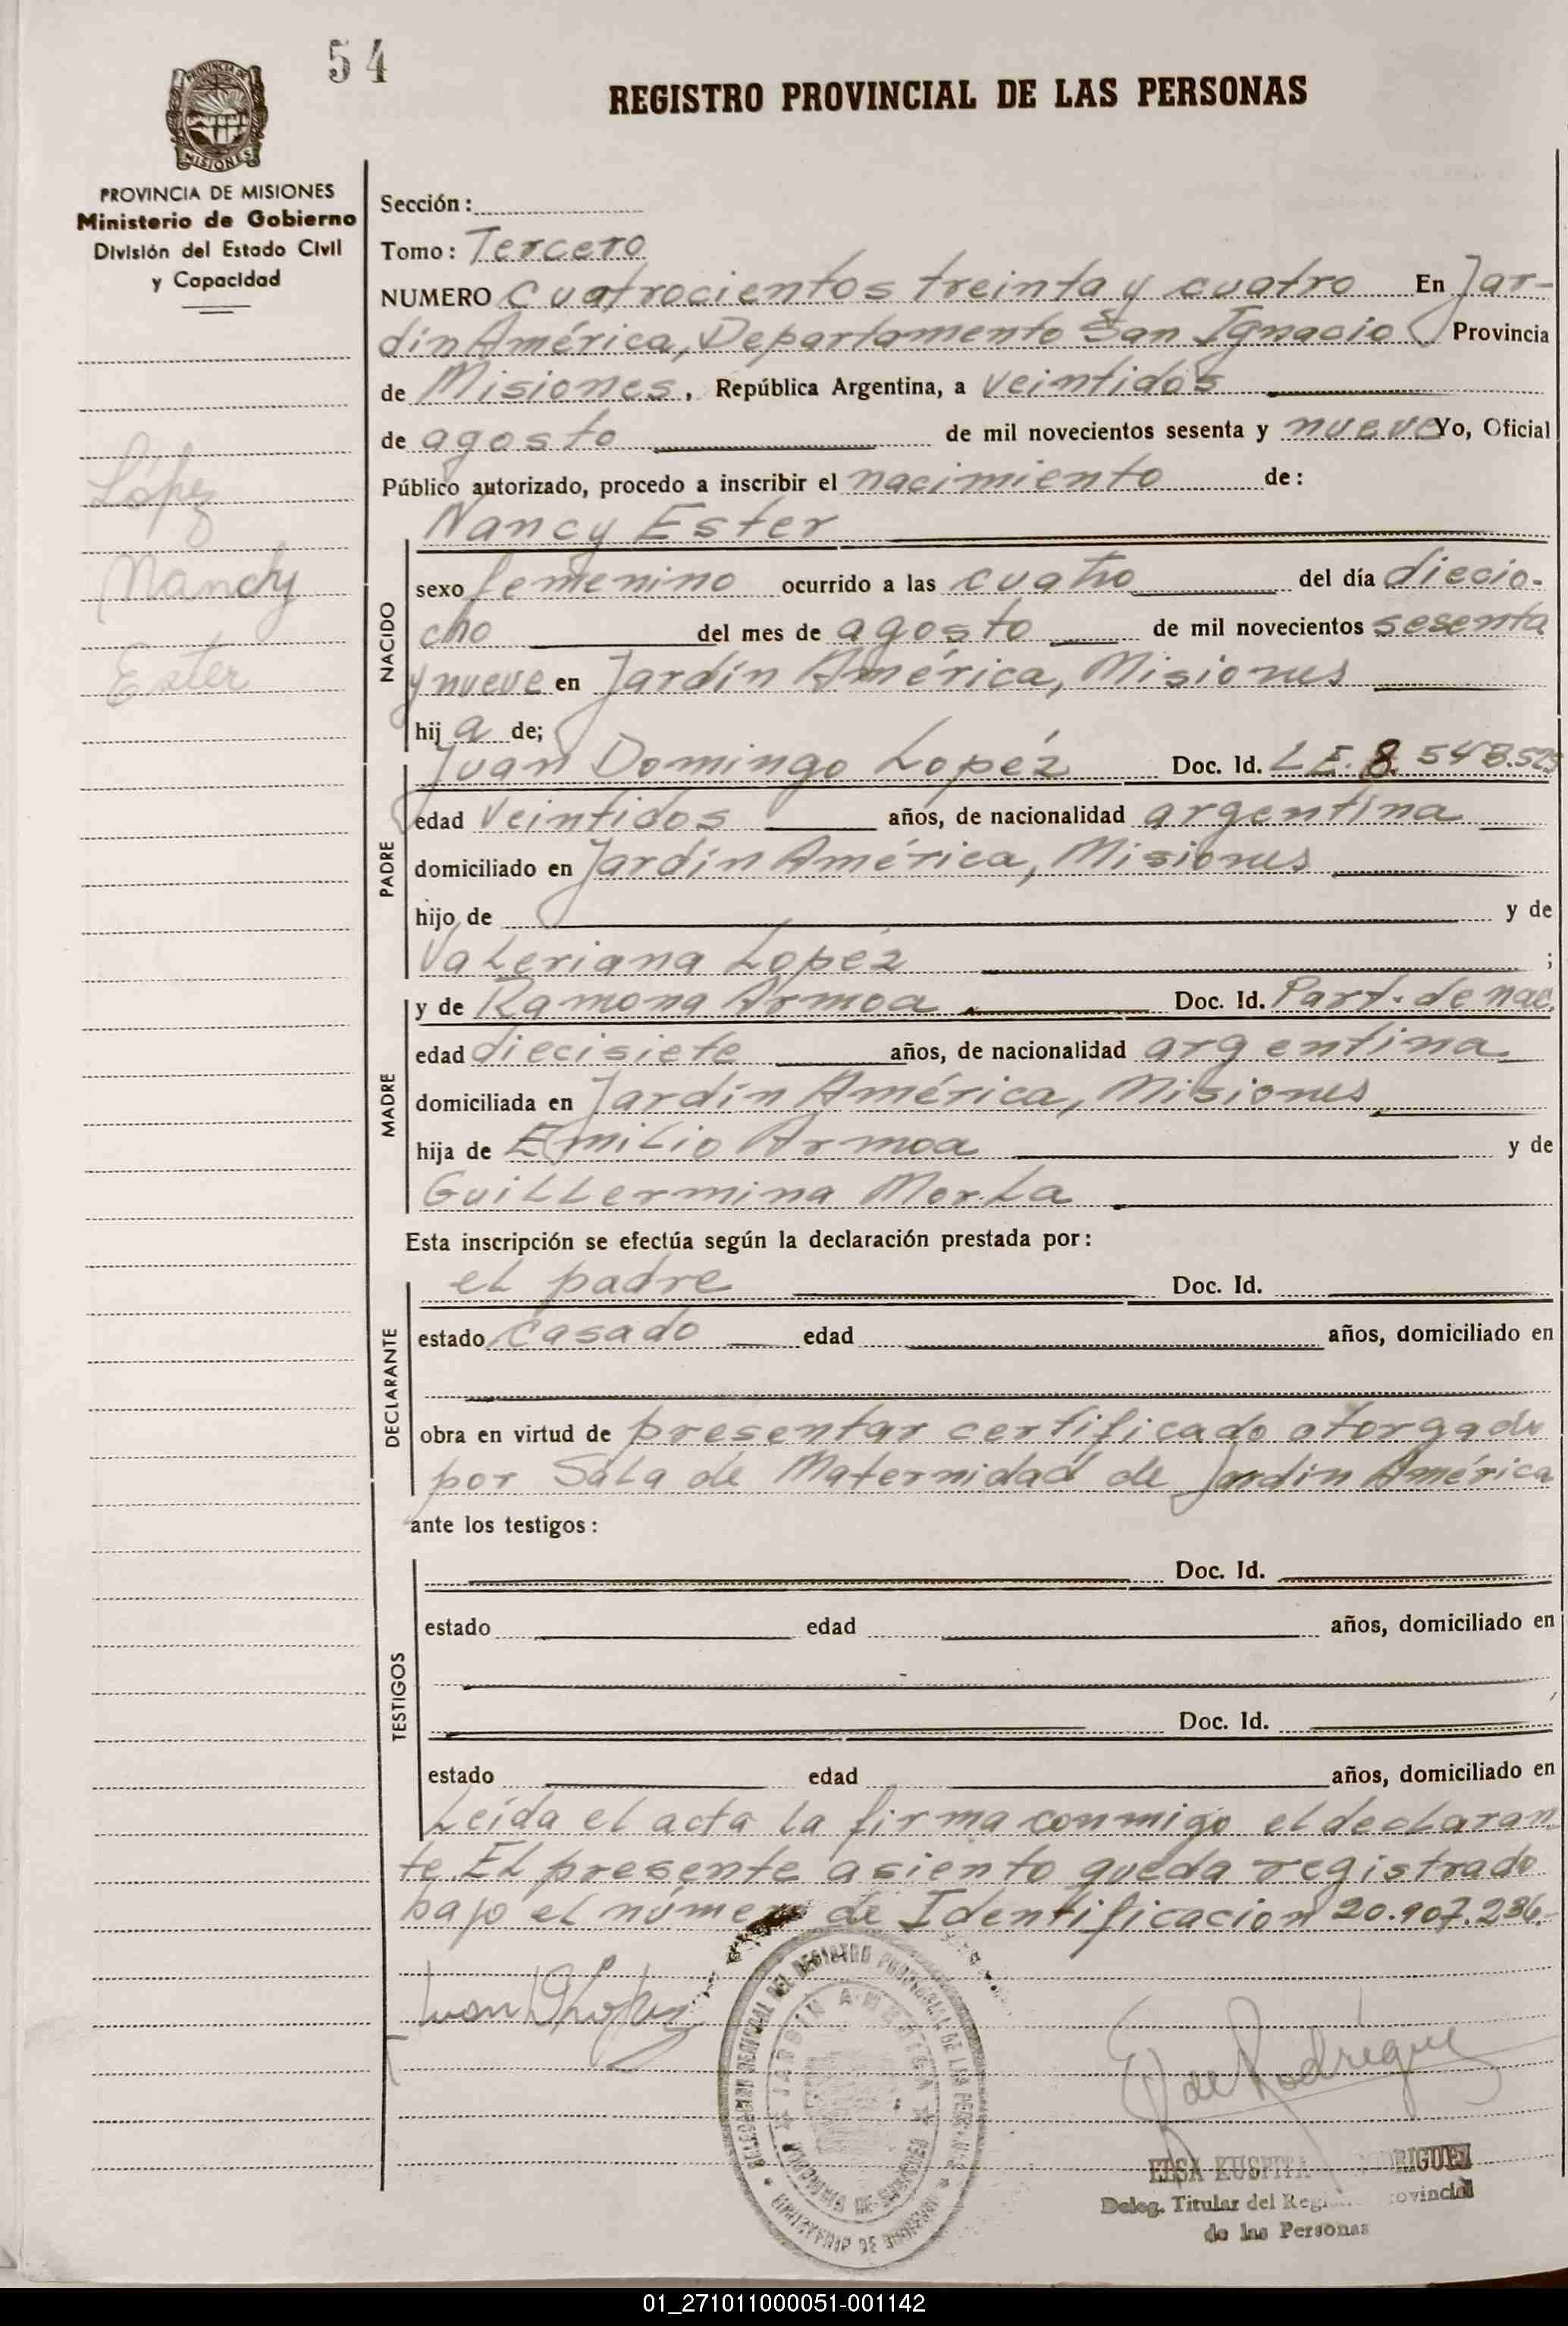 54
REGISTRO PROVINCIAL DE LAS PERSONAS
MISIONES
PROVINCIA DE MISIONES
Ministerio de Gobierno
División del Estado Civil
y Capacidad
López
Nancy
Ester
Sección:
Tomo: Tercero
NUMERO Cuatrocientos treinta y cuatro En Jar-
dín América, Departamento San Ignacio Provincia
de Misiones, República Argentina, a veintidós
de agosto de mil novecientos sesenta y nueve Yo, Oficial
Público autorizado, procedo a inscribir el nacimiento de:
NACIDO
Nancy Ester
sexo femenino ocurrido a las cuatro del día diecio-
cho del mes de agosto de mil novecientos sesenta
y nueve en Jardín América, Misiones
hij a de;
PADRE
Juan Domingo Lopéz Doc. Id. L.E. 8.548.525
edad veintidos años, de nacionalidad argentina
domiciliado en Jardín América, Misiones
hijo de y de
Valeriana Lopéz ;
MADRE
y de Ramona Armoa Doc. Id. Part. de nac.
edad diecisiete años, de nacionalidad argentina
domiciliada en Jardín América, Misiones
hija de Emilio Armoa y de
Guillermina Morla
Esta inscripción se efectúa según la declaración prestada por:
DECLARANTE
el padre Doc. Id.
estado casado edad años, domiciliado en
obra en virtud de presentar certificado otorgado
por Sala de Maternidad de Jardín América
ante los testigos:
TESTIGOS
Doc. Id.
estado edad años, domiciliado en
Doc. Id.
estado edad años, domiciliado en
Leída el acta la firma conmigo el declaran-
te. El presente asiento queda registrado
bajo el número de Identificacion 20.907.236.-
Juan D Lopez
DELEGACION REGIONAL DEL REGISTRO PROVINCIAL DE LAS PERSONAS
JARDIN AMERICA
PROVINCIA DE MISIONES
E K de Rodríguez
ELSA KUSPITA RODRIGUEZ
Deleg. Titular del Registro Provincial
de las Personas
01_271011000051-001142